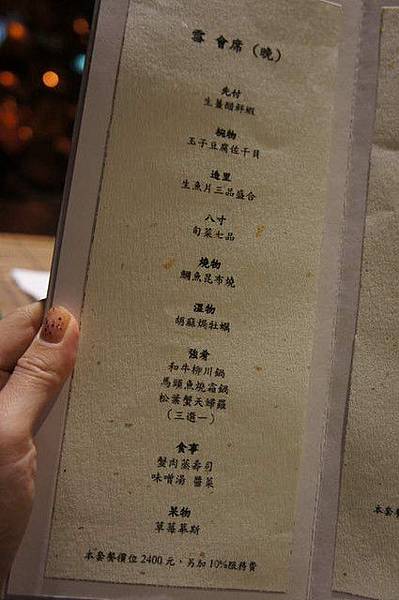 雪 會席（晚）
先付
生薑醋鮮蝦
椀物
玉子豆腐佐干貝
造里
生魚片三品盛合
八寸
旬菜七品
燒物
鯛魚昆布燒
溫物
胡麻焗牡蠣
強肴
和牛柳川鍋
馬頭魚燒霜鍋
松葉蟹天婦羅
（三選一）
食事
蟹肉蒸壽司
味噌湯 醬菜
菓物
草莓慕斯
本套餐價位2400元，另加10%服務費
本套